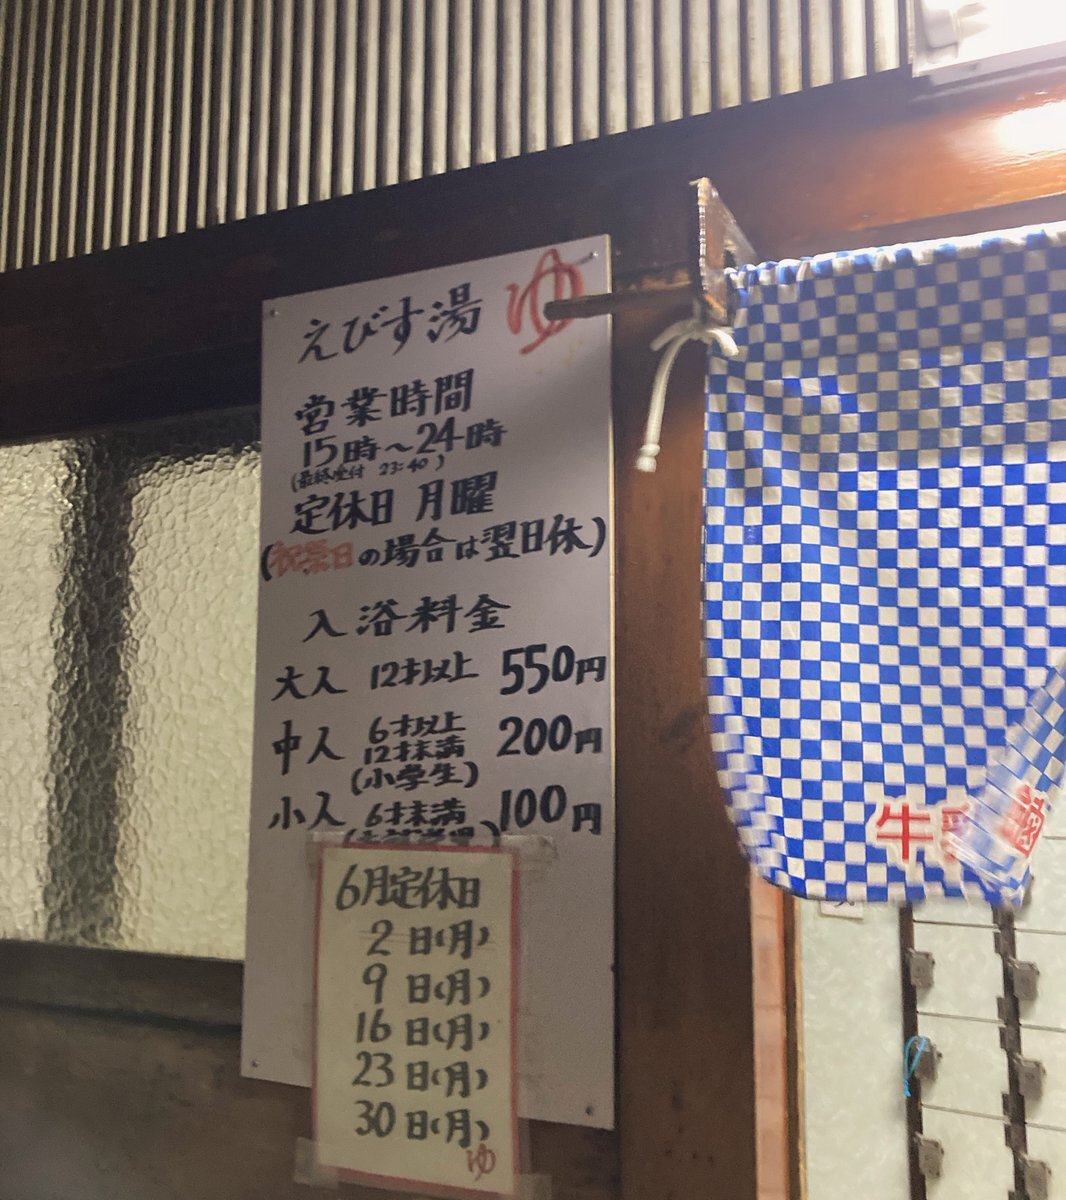 えびす湯 ゆ
営業時間
15時～24時
(最終受付 23:40)
定休日 月曜
(祝祭日の場合は翌日休)
入浴料金
大人 12才以上 550円
中人 6才以上
12才未満 200円
(小学生)
小人 6才未満 100円
6月定休日
2日(月)
9日(月)
16日(月)
23日(月)
30日(月)
ゆ
牛